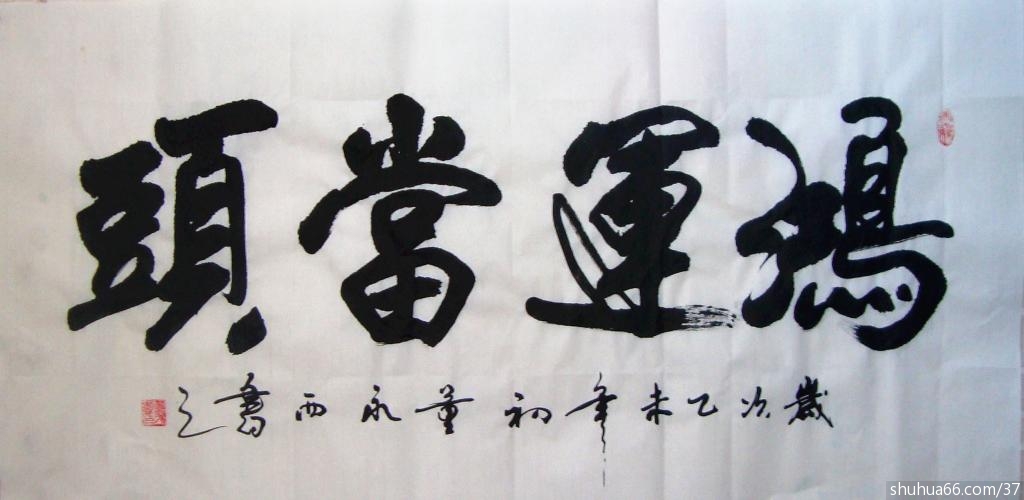 鴻運當頭
歲次乙未年初董永西書之
shuhua66.com/37